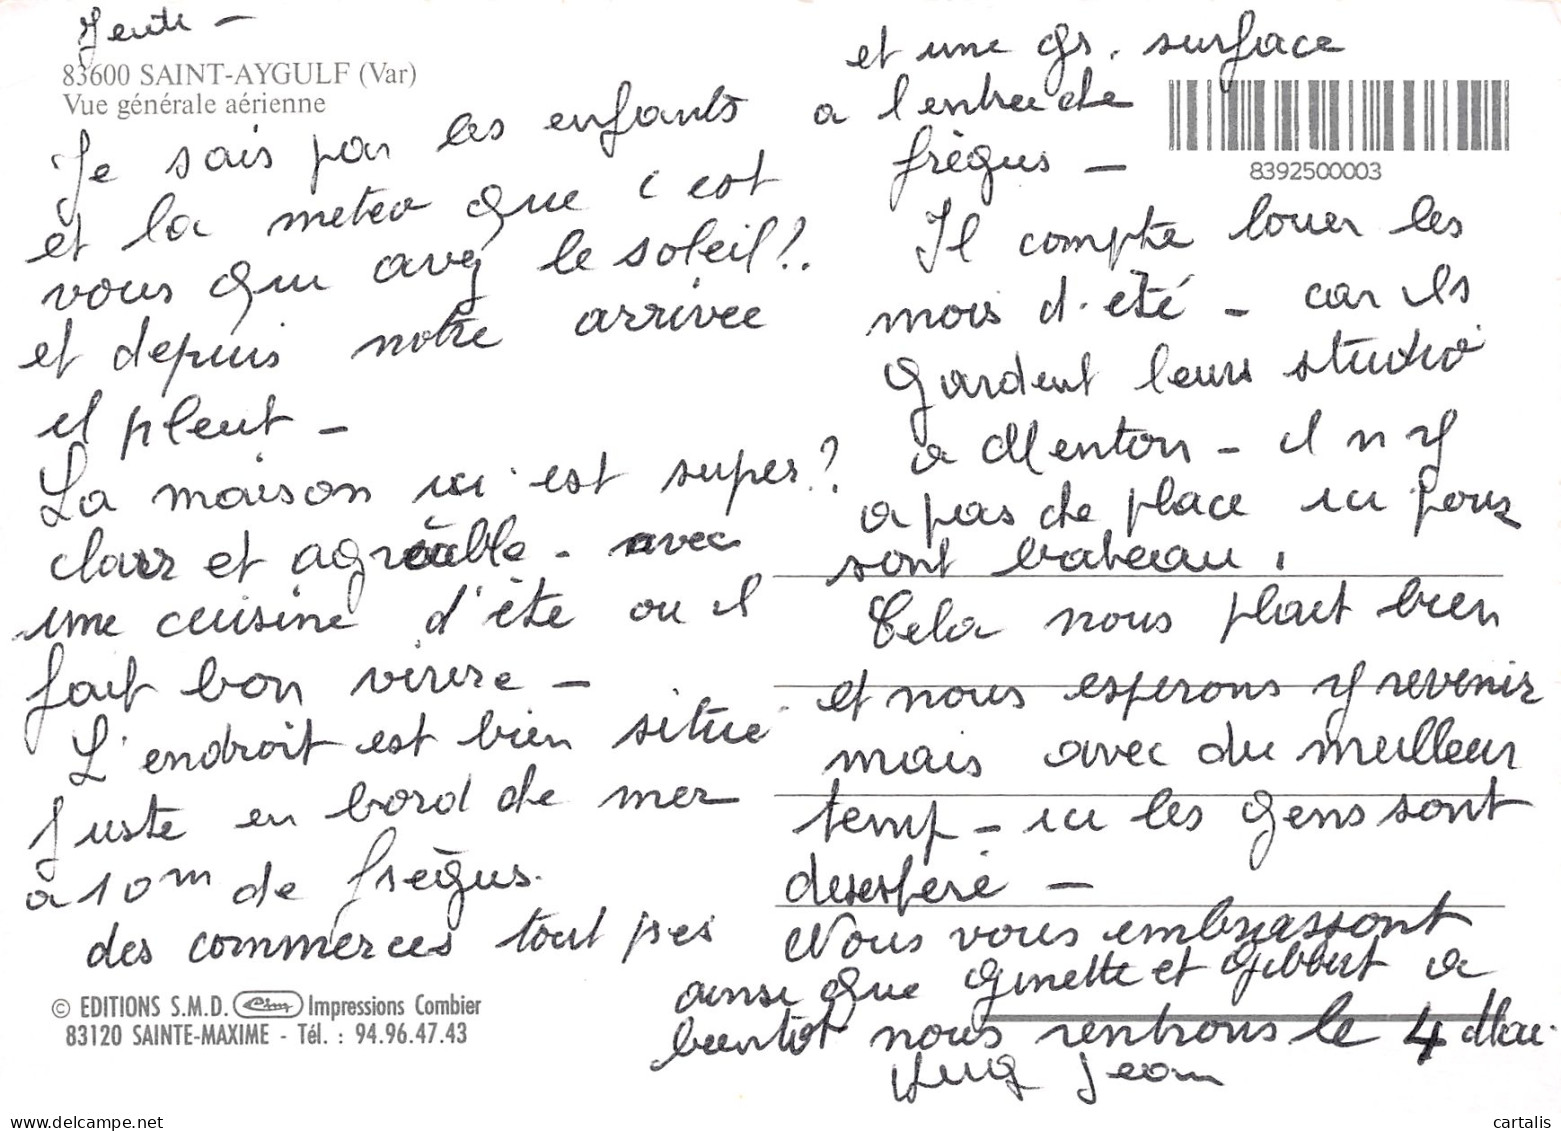 Jeudi –
83600 SAINT-AYGULF (Var)
Vue générale aérienne
Je sais par les enfants
et la meteo que c est
vous qui avez le soleil?.
et depuis notre arrivee
il pleut –
La maison ici est super?
claire et agréable - avec
une cuisine d'éte ou il
fait bon vivre –
L'endroit est bien situe
juste en bord de mer
a 10 m de frègus.
des commerces tout pres
© EDITIONS S.M.D. Cim Impressions Combier
83120 SAINTE-MAXIME - Tél. : 94.96.47.43
et une gr. surface
a l'entree de
frègus –
8392500003
Il compte louer les
mois d'eté – car ils
gardent leurs studio
a Menton – il n y
a pas de place ici pour
sont bateau.
Cela nous plait bien
et nous esperons y revenir
mais avec du meilleur
temp – ici les gens sont
desesperé –
Nous vous embrassont
ainsi que Ginette et Gilbert a
bientôt nous rentrons le 4 Mai.
Jean
cartalis